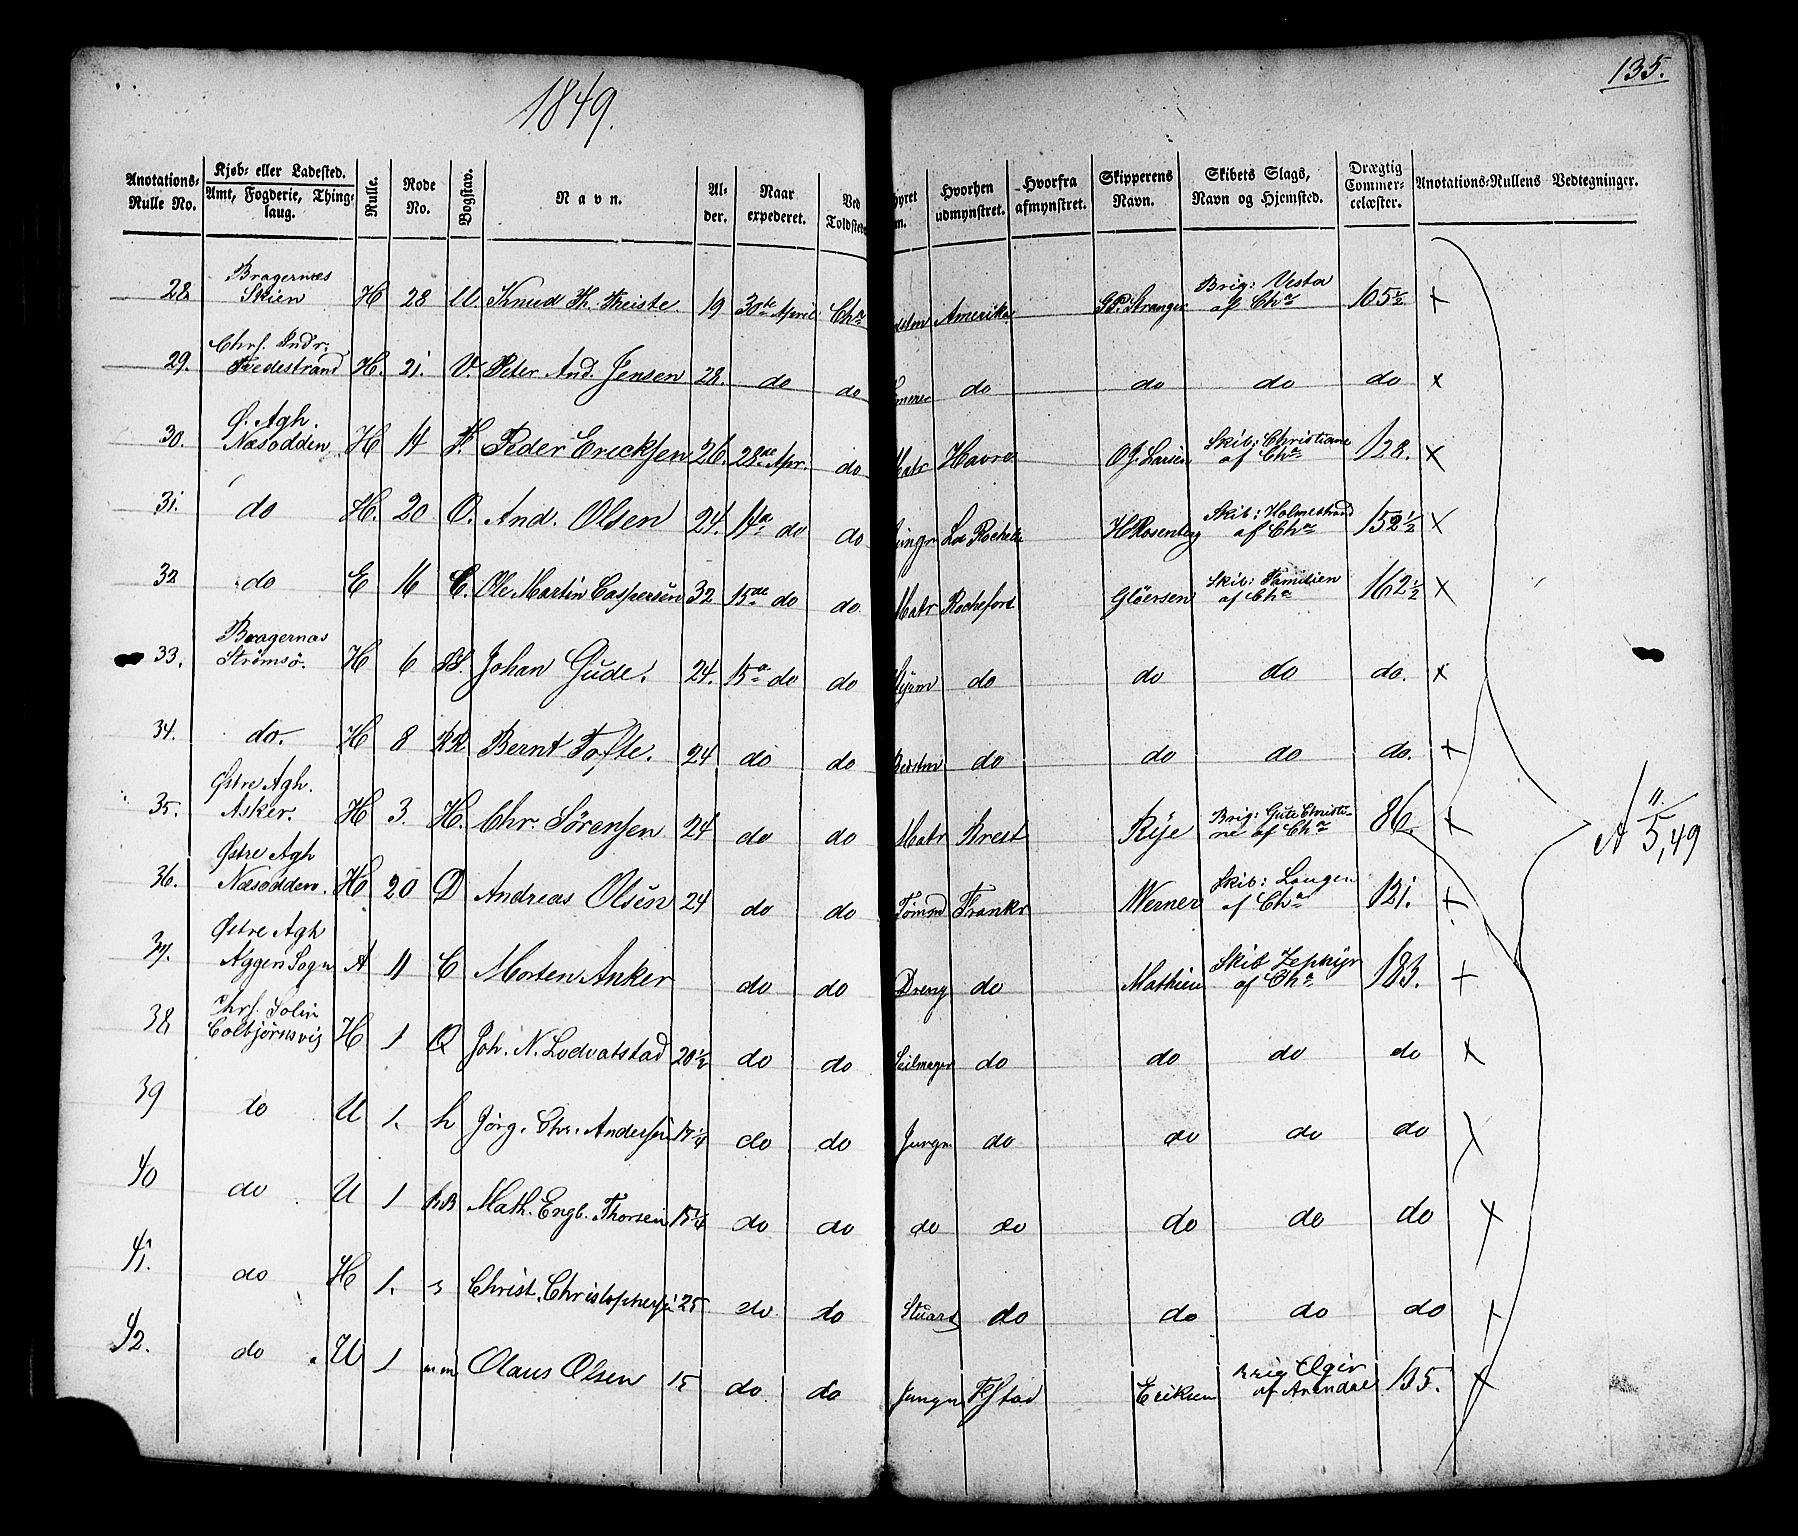 1849.
135.
Anotations-Rulle No. | Kjøb- eller Ladested. Amt, Fogderie, Thinglaug. | Rulle. | Rode No. | Bogstav. | Navn. | Alder. | Naar expederet. | Ved Toldstede | hyret m. | Hvorhen udmynstret. | Hvorfra afmynstret. | Skipperens Navn. | Skibets Slags, Navn og Hjemsted. | Drægtig Commercelæster. | Anotations-Rullens Vedtegninger.
28 | Bragernæs Skien | H | 28 | U. | Knud Th. Theiste. | 19 | 30te April | Cha | Amerika | Stranger | Brig: Vesta af Cha | 165½ | x
29. | Chrs. Indr. Tvedestrand | H. | 21. | V. | Peter And. Jensen | 28. | do | do | do | do | do | do | x
30. | Ø. Agh. Næsodden | H | 14 | Peder Ericksen | 26. | 28de Apr. | do | Matr | Havre | O J. Larsen | Skib: Christiane af Cha | 128. | x
31. | do | H. | 20 | O. | And. Olsen | 24. | 14de do | do | Jungn | La Rochelle | H Rosenberg | Skib: Holmestrand af Cha | 152½ | x
32 | do | E | 16 | C. | Ole Martin Caspersen | 32 | 15de do | do. | Matr | Rochefort | Gløersen | Skib: Familien af Cha | 162½ | x
33. | Bragernæs Strømsø. | H | 6 | Johan Gude. | 24. | 15de do | do | Styrm | do | do | do | do. | x
34. | do. | H | 8 | RR | Bernt Tofte. | 24 | do | do | do | do | do | do. | x
35. | Østre Agh. Asker. | H | 3. | H. | Chr. Sörensen | 24 | do | do | Matr | Brest | Rye | Brig: Gute Christine af Cha | 86. | x
36. | Østre Agh Næsodden. | H | 20 | D | Andreas Olsen | 24 | do | do | Tømmd | Frankr | Werner | Skib: Lougen af Cha | 121. | x
37. | Østre Agh Aggers Sogn | A | 11 | C | Morten Anker | do | do | Dreng | do | Mathiesen | Skib Zephyr af Cha | 183. | x
38 | Chrs. Solin Colbjørnsvig | H | 1 | Q | Joh. N. Lodvatstad | 20½ | do | do | Seilmager | do | do | do | do | x
39 | do | U | 1. | h | Jörg. Chr. Andersen | 17¼ | do | do | Jungn | do | do | do | do | x
40 | do | U | 1 | Math. Engb. Thorsen | 15¼ | do | do | do | do | do | do | do | x
41. | do | H | 1. | Christ. Christophersen | 25 | do | do | Stuart | do | do | do | do | x
42. | do | U | 1 | mm | Olaus Olsen | 15 | do. | do | Jungn | Fstad | Eriksen | Brig Ægir af Arendal | 135. | x
A 11/5, 49